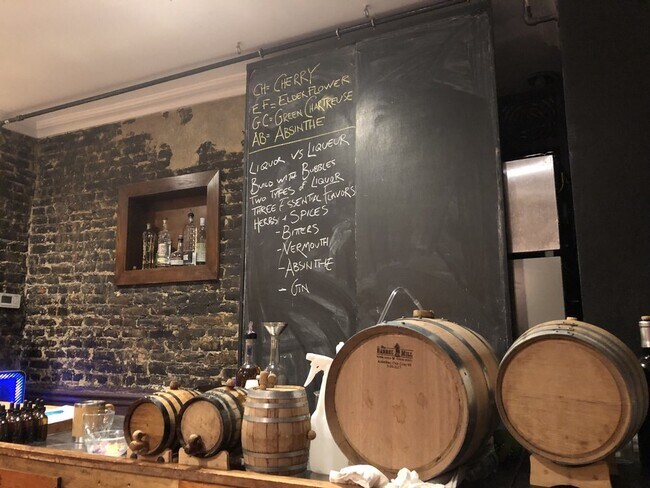 CH= CHERRY
EF= ELDERFLOWER
GC= GREEN CHARTREUSE
AB= ABSINTHE
LIQUOR VS LIQUEUR
BUILD WITH BUBBLES
TWO TYPES OF LIQUOR
THREE ESSENTIAL FLAVORS
HERBS & SPICES
- BITTERS
- VERMOUTH
- ABSINTHE
- GIN
BARREL MILL